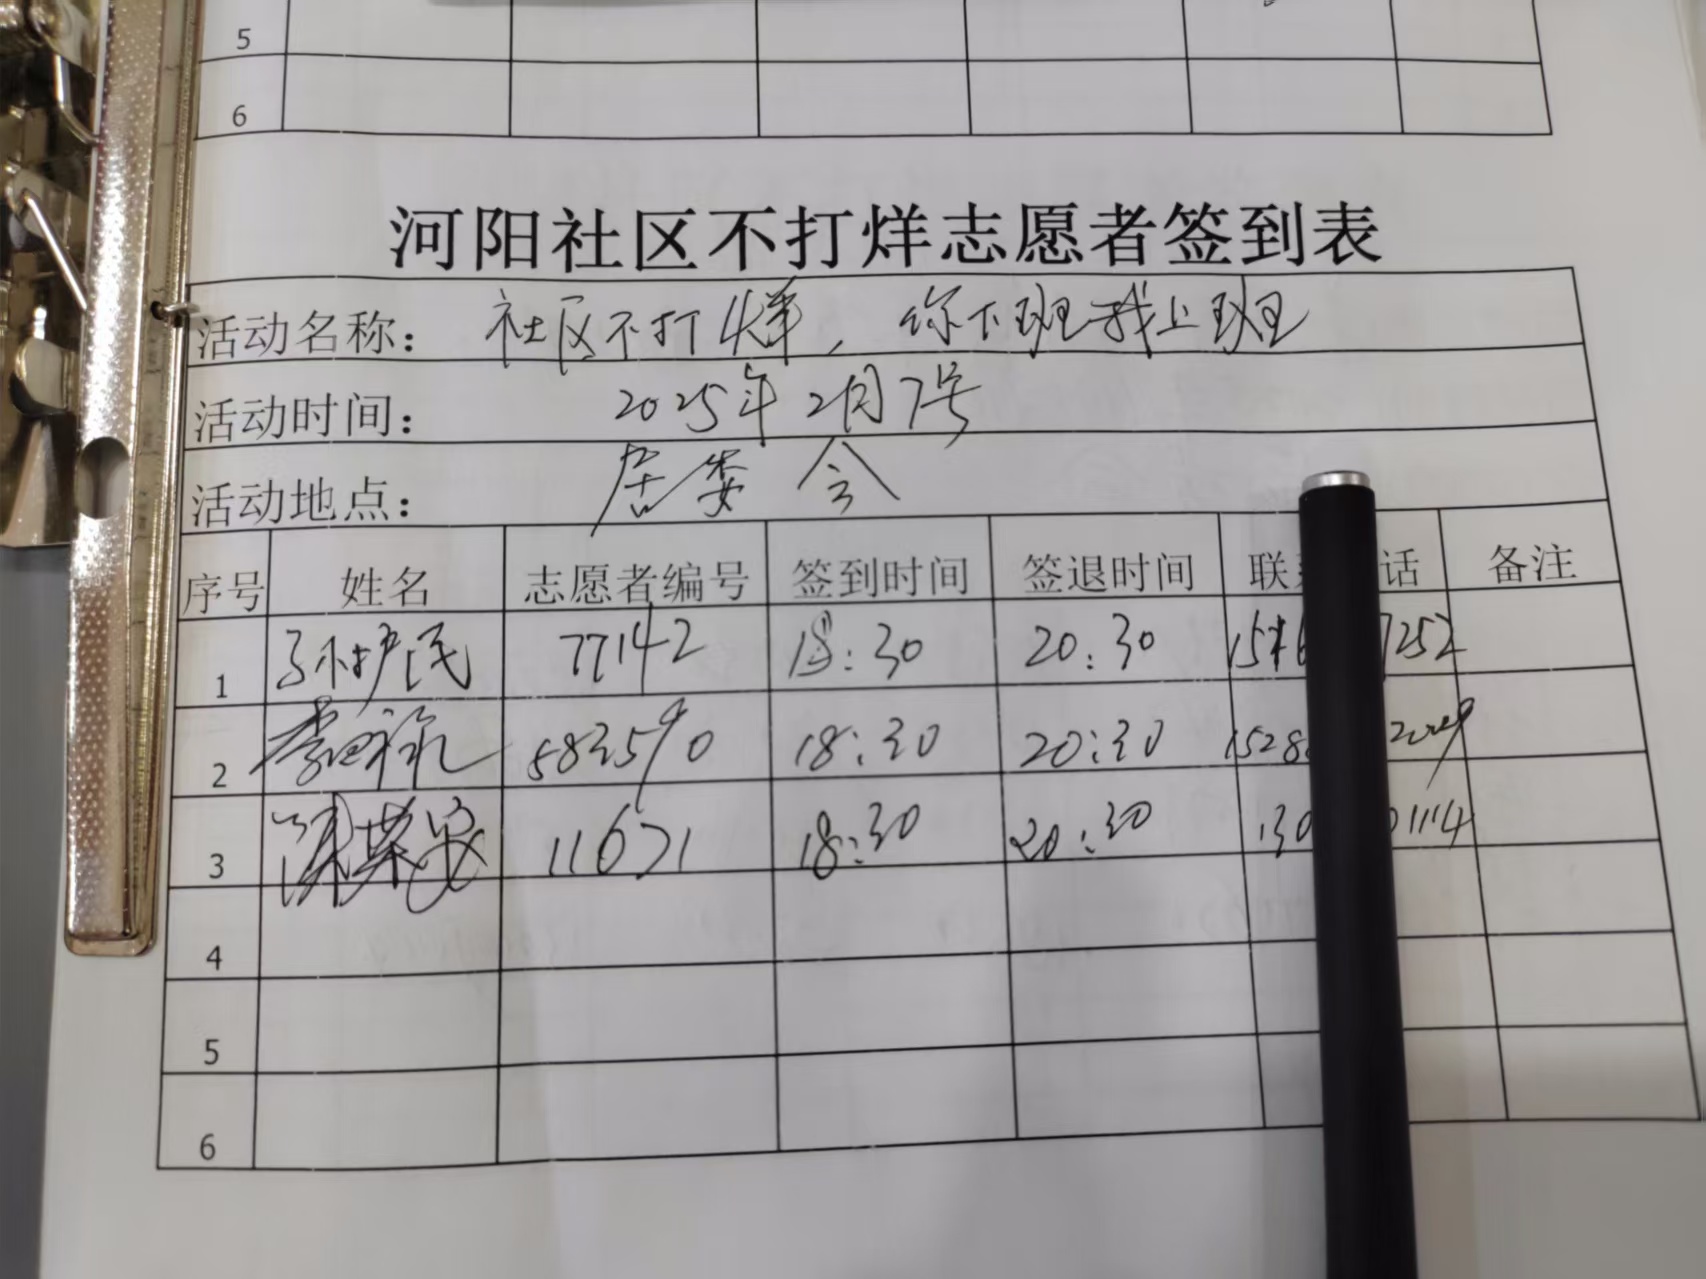 5
6
河阳社区不打烊志愿者签到表
活动名称： 社区不打烊，你下班我上班
活动时间： 2025年2月7号
活动地点： 居委会
序号 姓名 志愿者编号 签到时间 签退时间 联 话 备注
1 孙护民 77142 18:30 20:30 151 7252
2 583590 18:30 20:30 1528 2029
3 11671 18:30 20:30 130 1114
4
5
6